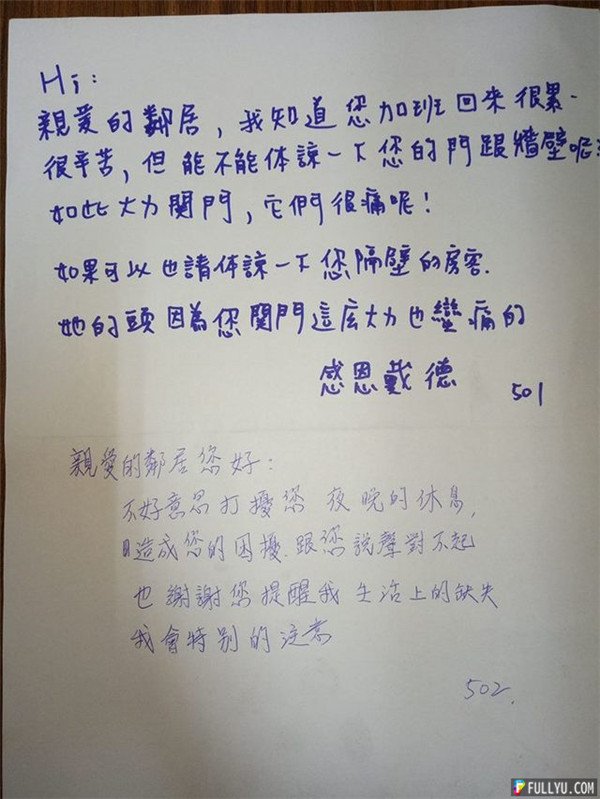 Hi:
親愛的鄰居，我知道您加班回來很累、
很辛苦，但能不能体諒一下您的門跟牆壁呢?
如此大力関門，它們很痛呢!
如果可以也請体諒一下您隔壁的房客.
她的頭因為您関門這広大力也蠻痛的
感恩戴德
501
親愛的鄰居您好:
不好意思打擾您 夜晚的休息,
造成您的困擾.跟您說聲對不起
也謝謝您提醒我 生活上的缺失
我會特別的注意
502.
FULLYU.COM